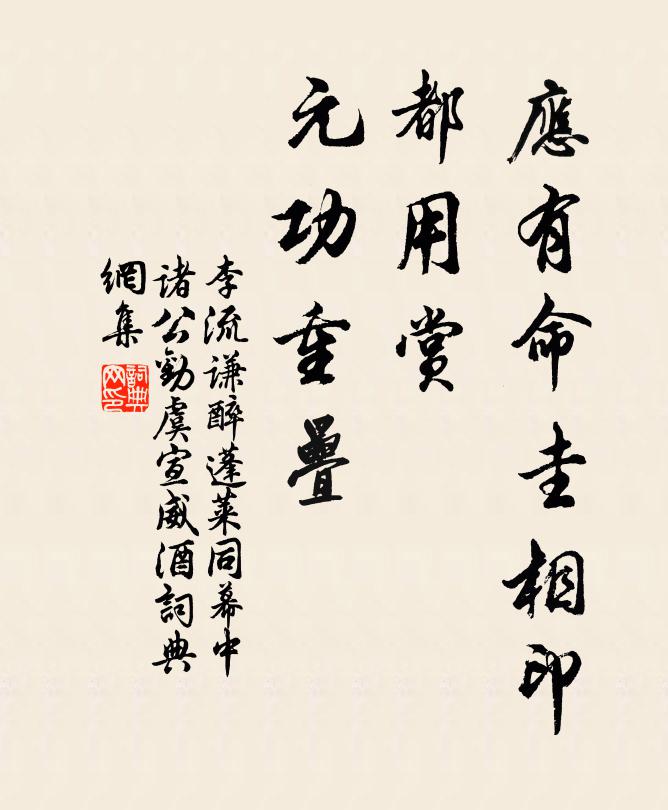 應有命圭相印
都用賞
元功重疊
李流謙醉蓬萊同幕中
諸公勸虞宣威酒詞典
網集
詞典
网印